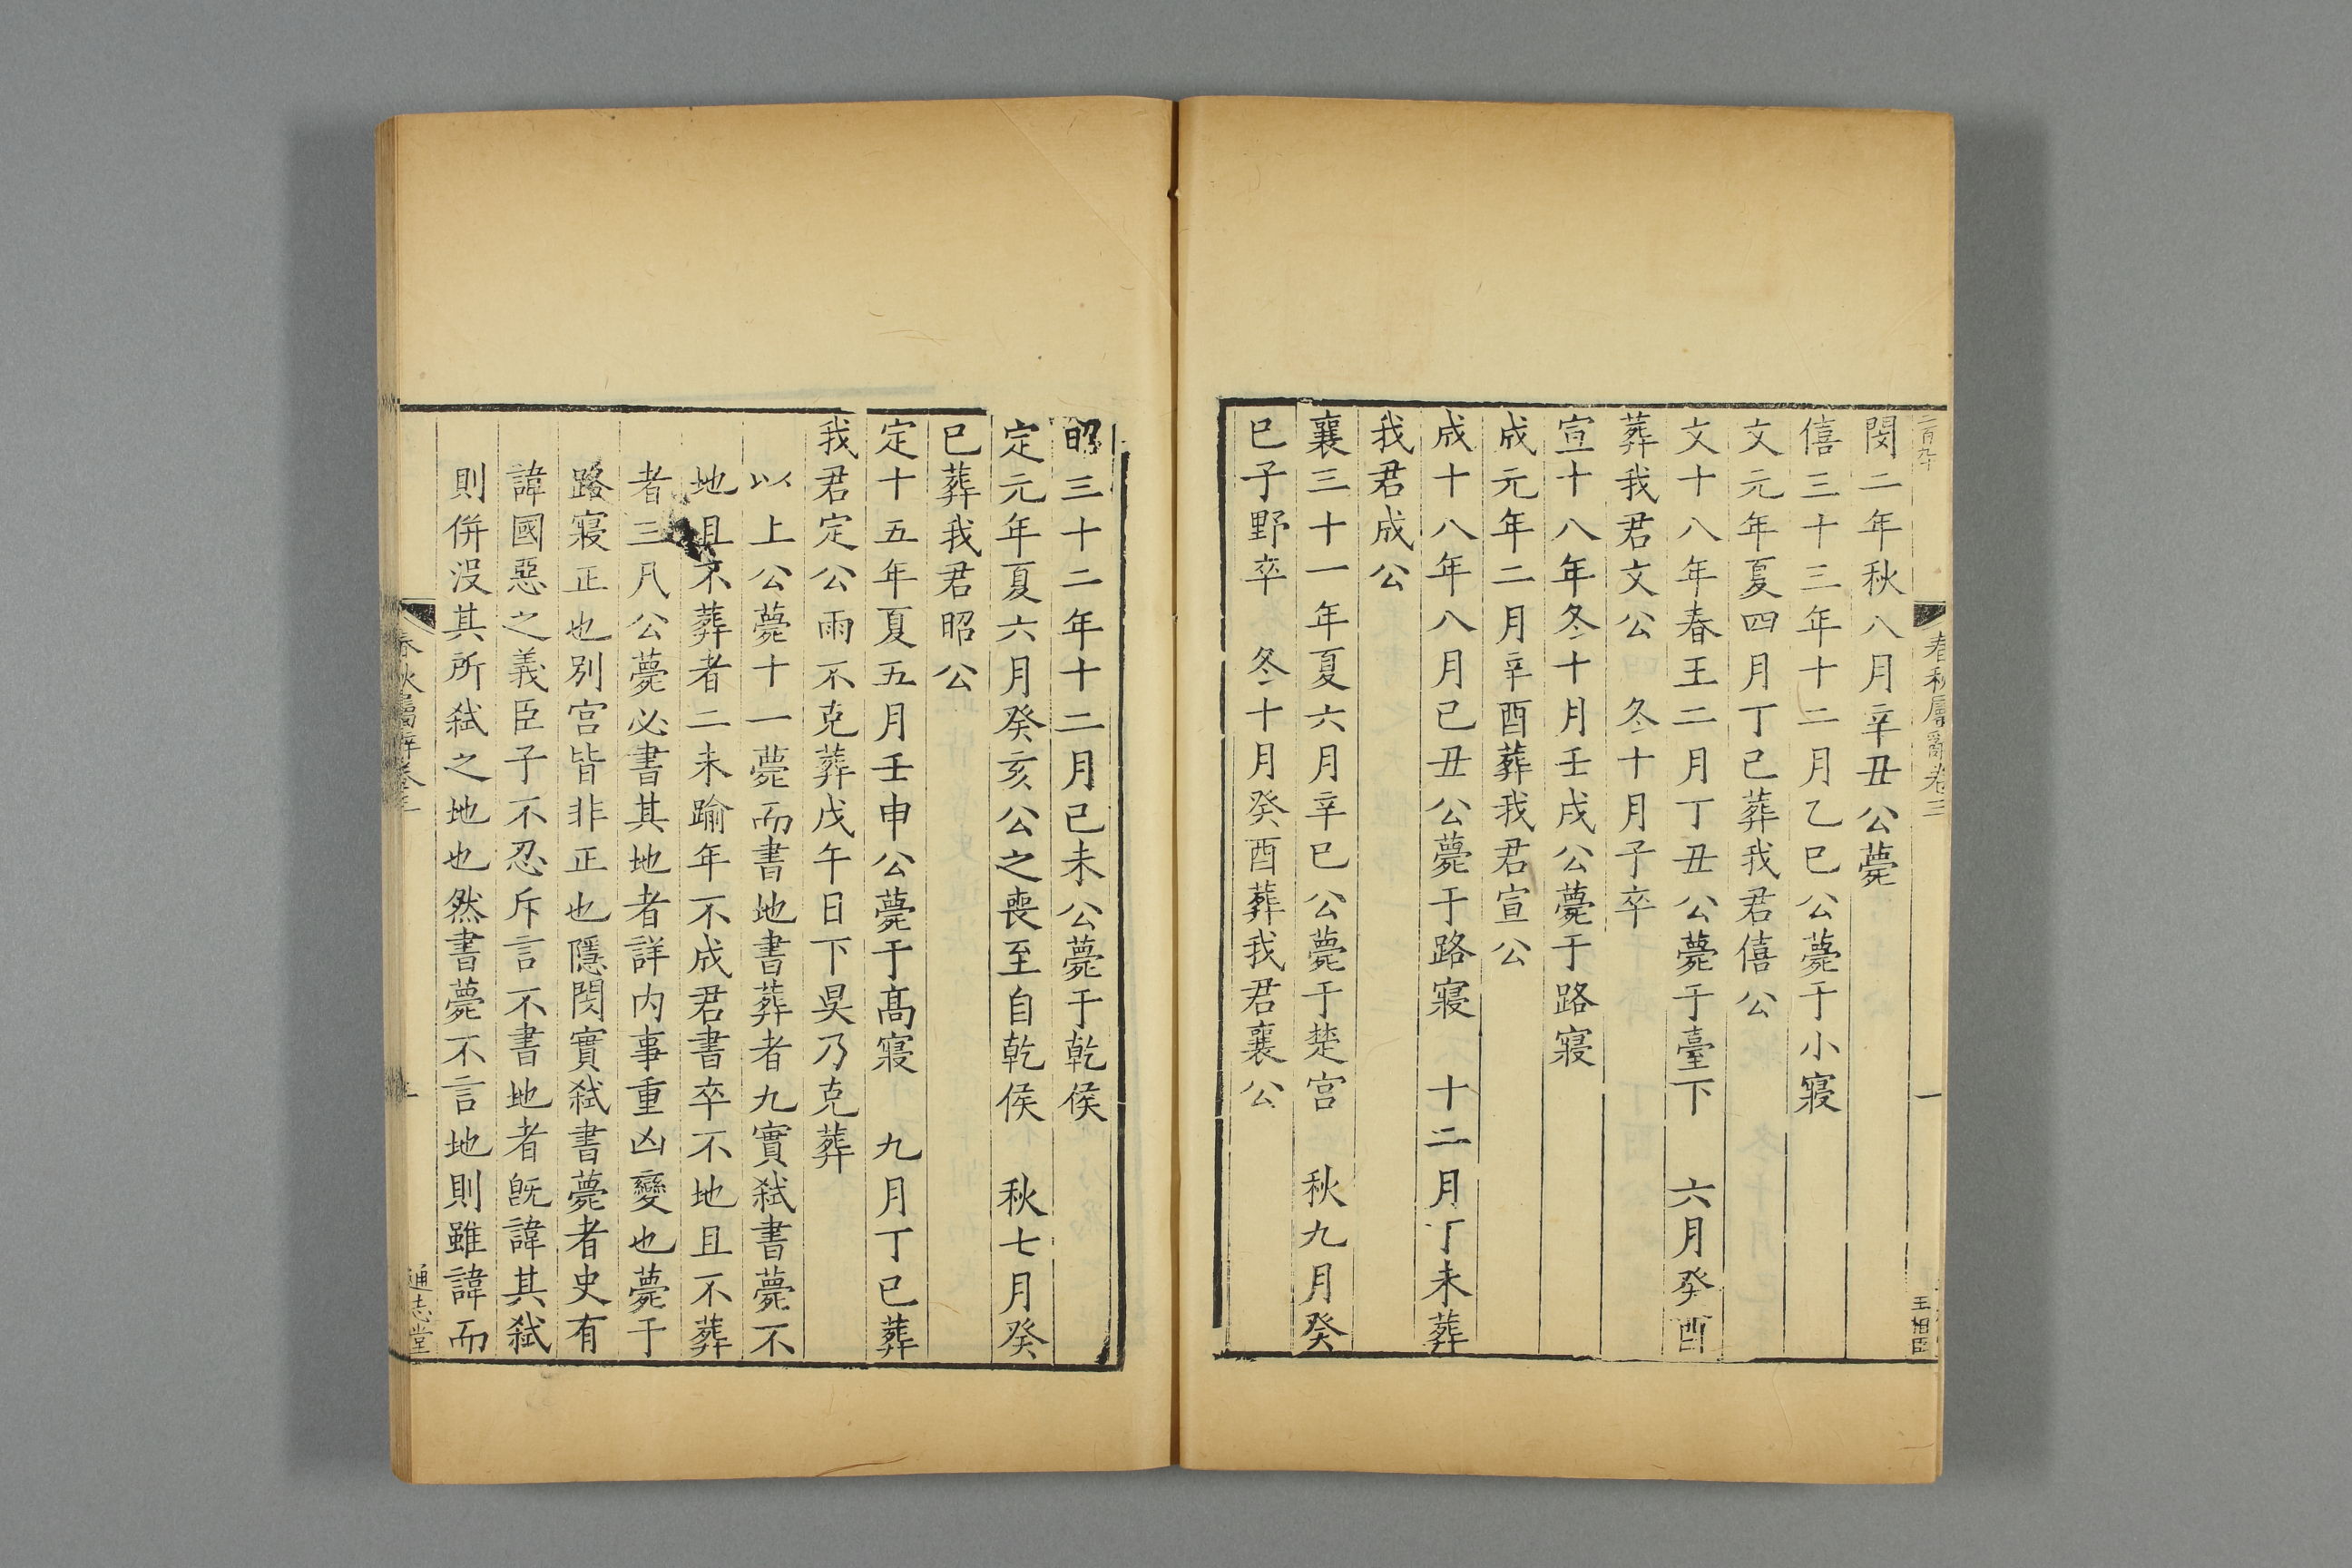 二百九十
春秋屬辭卷三
一
王相臣
閔二年秋八月辛丑公薨
僖三十三年十二月乙巳公薨于小寢
文元年夏四月丁巳葬我君僖公
文十八年春王二月丁丑公薨于臺下　六月癸酉
葬我君文公　冬十月子卒
宣十八年冬十月壬戌公薨于路寢
成元年二月辛酉葬我君宣公
成十八年八月已丑公薨于路寢　十二月丁未葬
我君成公
襄三十一年夏六月辛巳公薨于楚宫　秋九月癸
巳子野卒　冬十月癸酉葬我君襄公
昭三十二年十二月已未公薨于乾侯
定元年夏六月癸亥公之喪至自乾侯　秋七月癸
巳葬我君昭公
定十五年夏五月壬申公薨于髙寢　九月丁巳葬
我君定公雨不克葬戊午日下昃乃克葬
以上公薨十一薨而書地書葬者九實弑書薨不
地且不葬者二未踰年不成君書卒不地且不葬
者三凡公薨必書其地者詳内事重凶變也薨于
路寢正也别宫皆非正也隱閔實弑書薨者史有
諱國惡之義臣子不忍斥言不書地者旣諱其弑
則併没其所弑之地也然書薨不言地則雖諱而
春秋屬辭卷三
通志堂